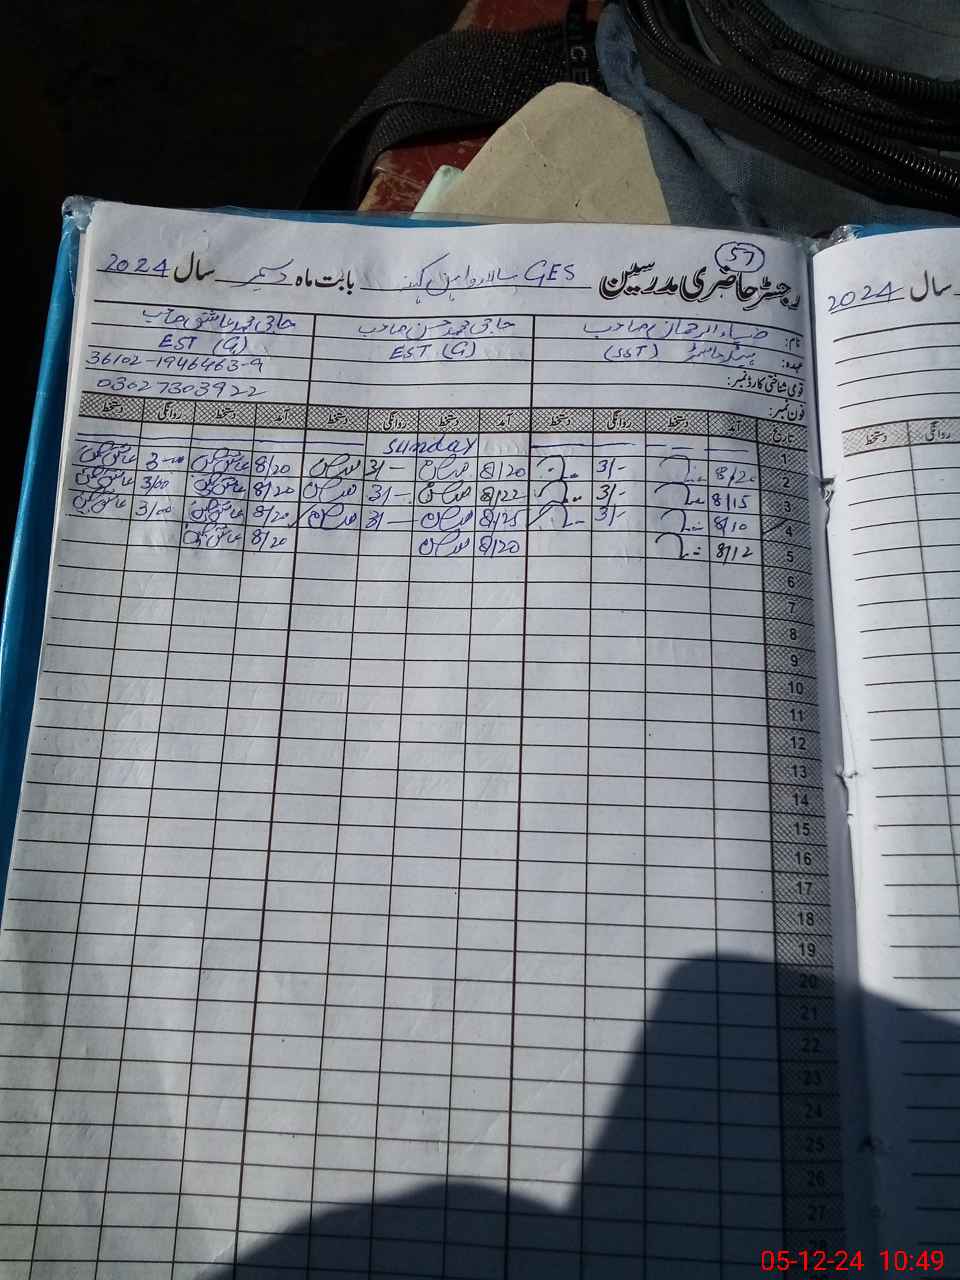 57
رجسٹر حاضری مدرسین GES بابت ماہ دسمبر سال 2024
نام: ضیاء الرحمان صاحب حاجی محمد حسن صاحب حاجی محمد عاشق صاحب
عہدہ: ہیڈ ماسٹر (SST) EST (G) EST (G)
قومی شناختی کارڈ نمبر: 36102-1946463-9
فون نمبر: 03027303922
تاریخ آمد دستخط روانگی دستخط آمد دستخط روانگی دستخط آمد دستخط روانگی دستخط
1 Sunday
2 8/20 3/- 8/20 3/- 8/20 3-00
3 8/15 3/- 8/22 3/- 8/20 3/00
4 8/10 3/- 8/25 3/- 8/20 3/00
5 8/12 8/20 8/20
6
7
8
9
10
11
12
13
14
15
16
17
18
19
20
21
22
23
24
25
26
27
28
سال 2024
روانگی دستخط
NCE
05-12-24 10:49